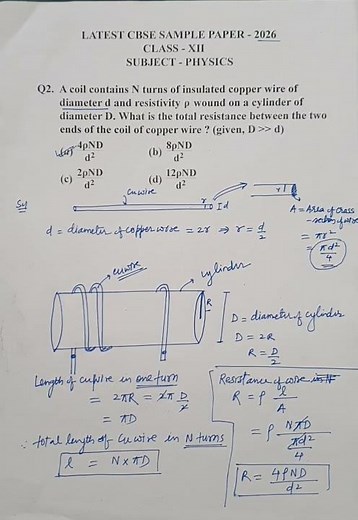 LATEST CBSE SAMPLE PAPER - 2026
CLASS - XII
SUBJECT - PHYSICS
Q2. A coil contains N turns of insulated copper wire of
diameter d and resistivity ρ wound on a cylinder of
diameter D. What is the total resistance between the two
ends of the coil of copper wire ? (given, D >> d)
(a) 4ρND/d² (b) 8ρND/d²
(c) 2ρND/d² (d) 12ρND/d²
Sol
Cu wire
r
d
r
A = Area of cross
-section of wire
= πr²
= πd²/4
d = diameter of copper wire = 2r ⇒ r = d/2
cu wire
cylinder
R
D = diameter of cylinder
D = 2R
R = D/2
Length of cu wire in one turn
= 2πR = 2π D/2
= πD
∴ total length of Cu wire in N turns
l = N × πD
Resistance of wire
R = ρ l/A
= ρ NπD/(πd²/4)
R = 4ρND/d²